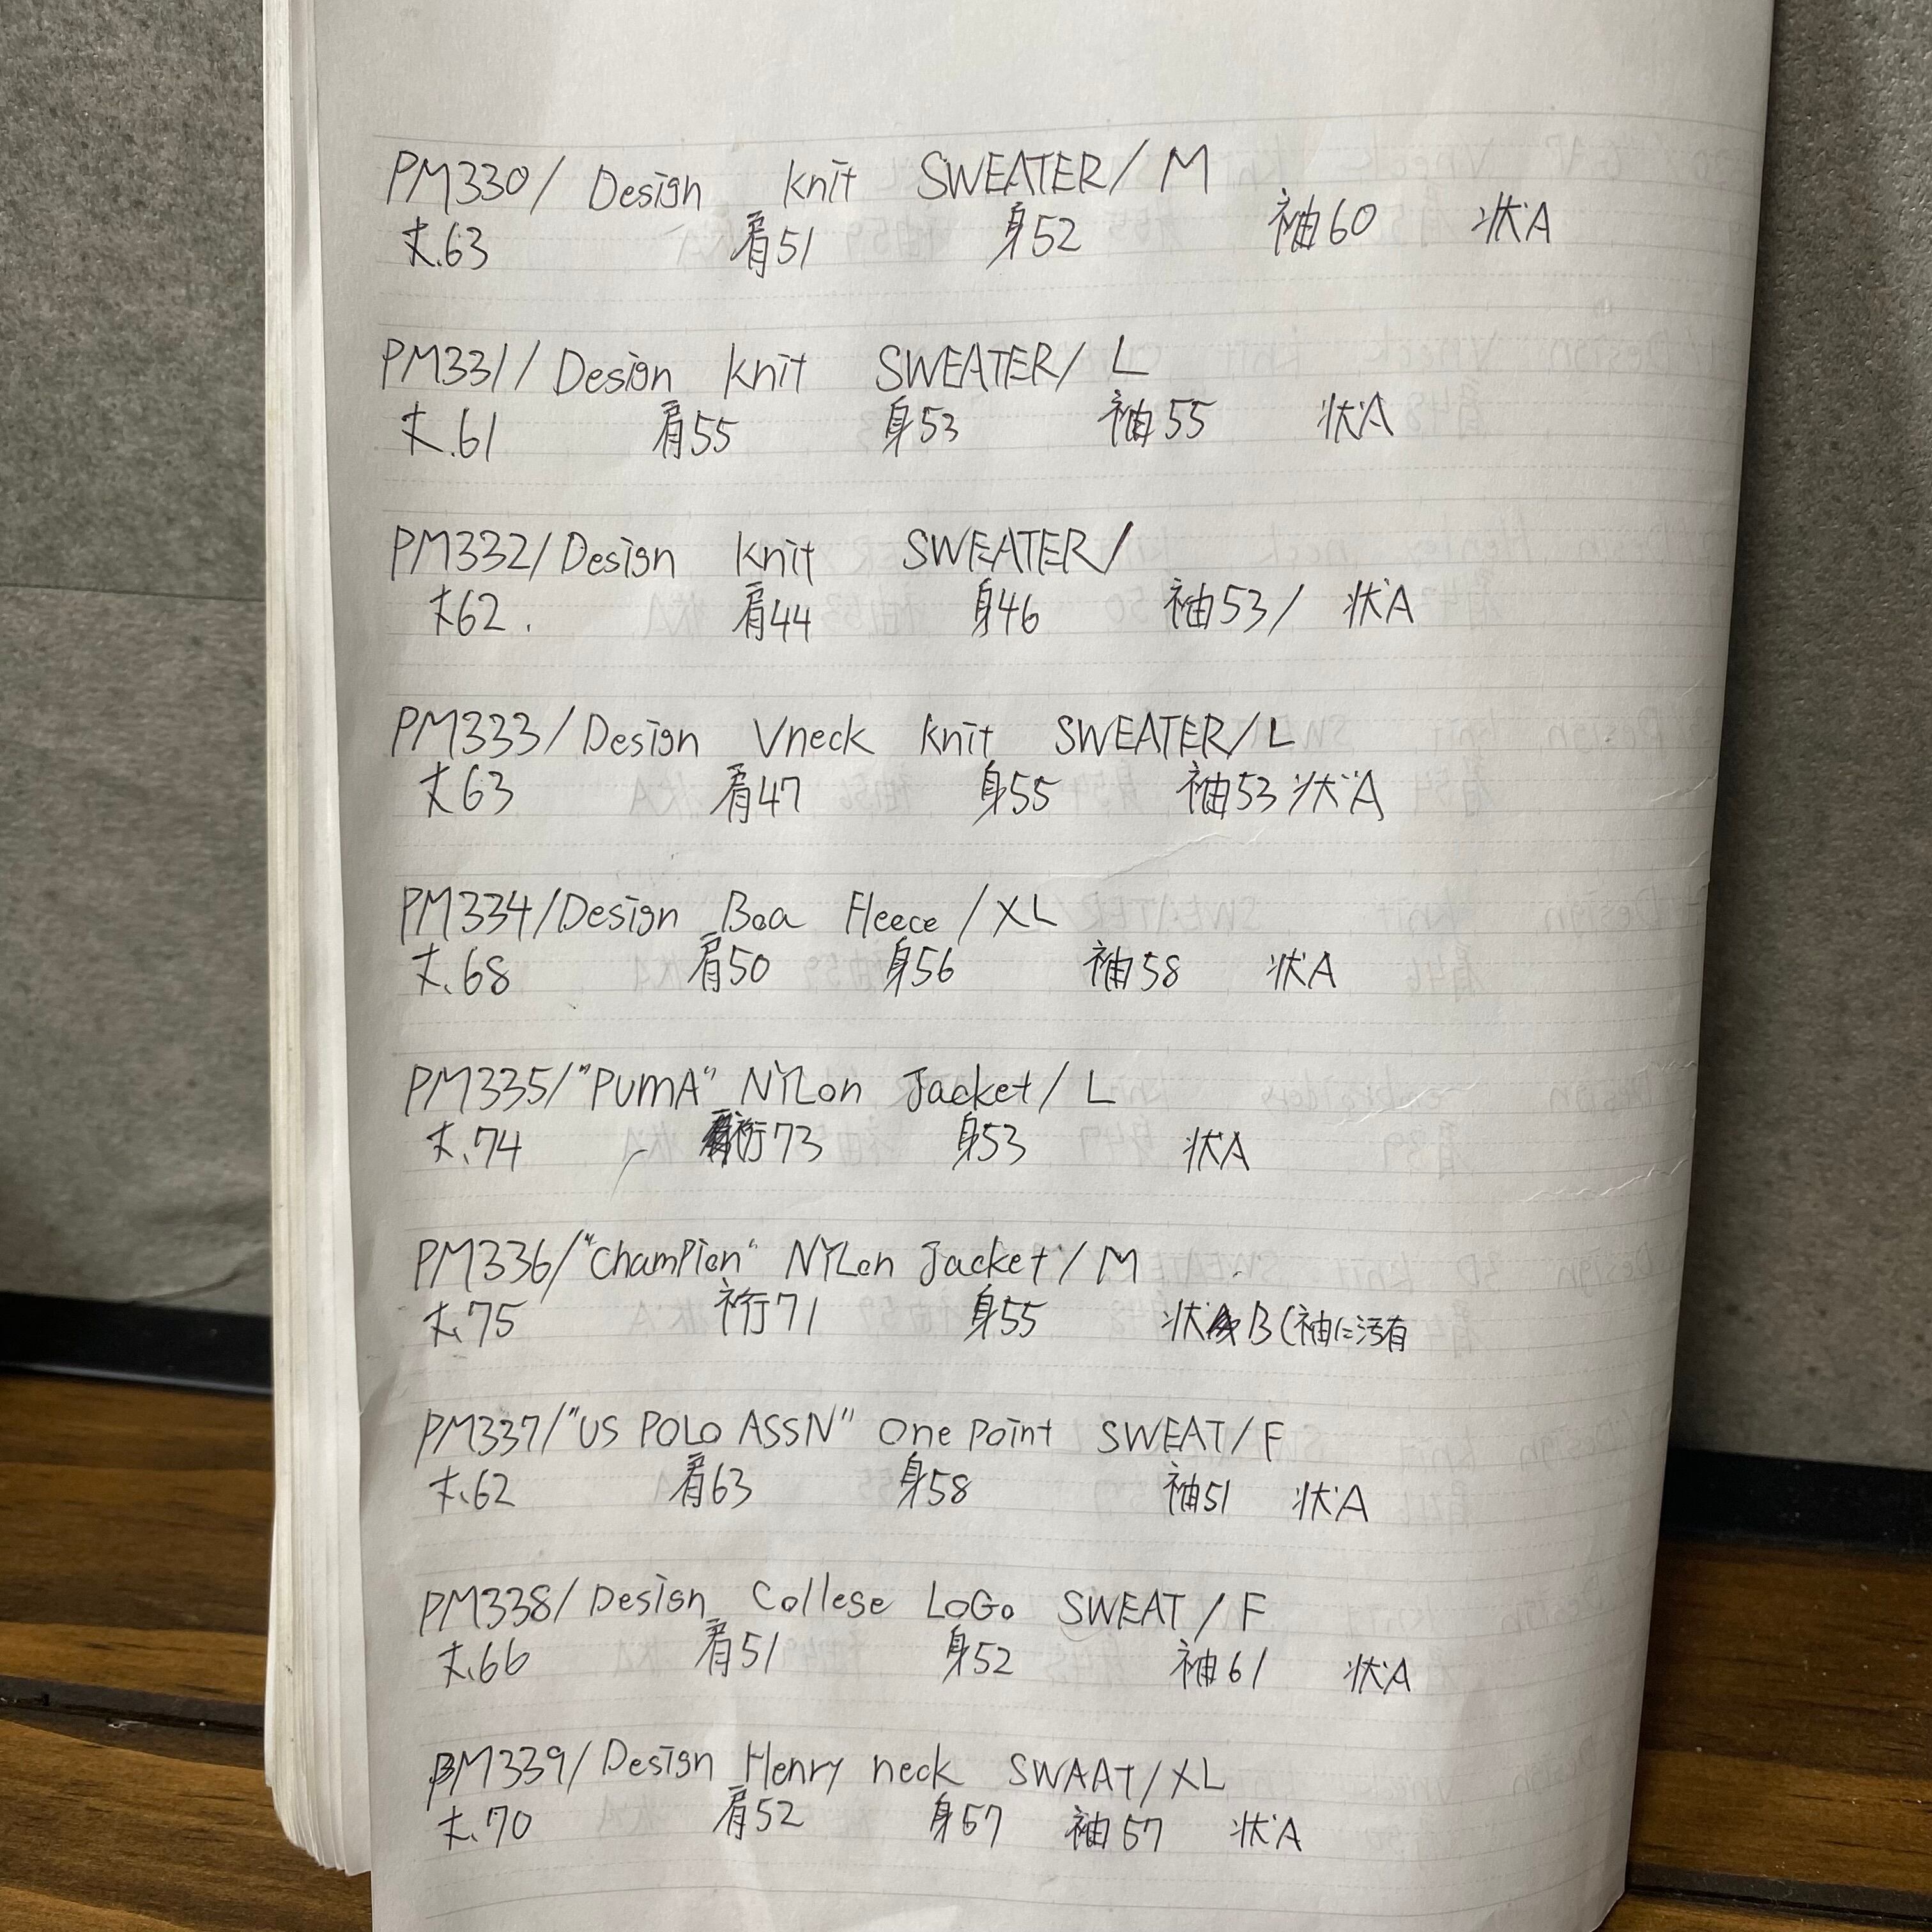 PM330/ Design knit SWEATER/ M
丈.63 肩51 身52 袖60 状A
PM331/ Design knit SWEATER/ L
丈.61 肩55 身53 袖55 状A
PM332/ Design knit SWEATER/
丈62. 肩44 身46 袖53/ 状A
PM333/ Design Vneck knit SWEATER/ L
丈63 肩47 身55 袖53 状A
PM334/ Design Boa Fleece / XL
丈.68 肩50 身56 袖58 状A
PM335/ "PUmA" NYLon Jacket/ L
丈.74 裄73 身53 状A
PM336/ "ChamPion" NYLon Jacket/ M
丈.75 裄71 身55 状B (袖に汚有
PM337/ "US POLo ASSN" One Point SWEAT/ F
丈.62 肩63 身58 袖51 状A
PM338/ Design Collese LoGo SWEAT / F
丈.66 肩51 身52 袖61 状A
PM339/ Design Henry neck SWAAT/ XL
丈.70 肩52 身57 袖57 状A